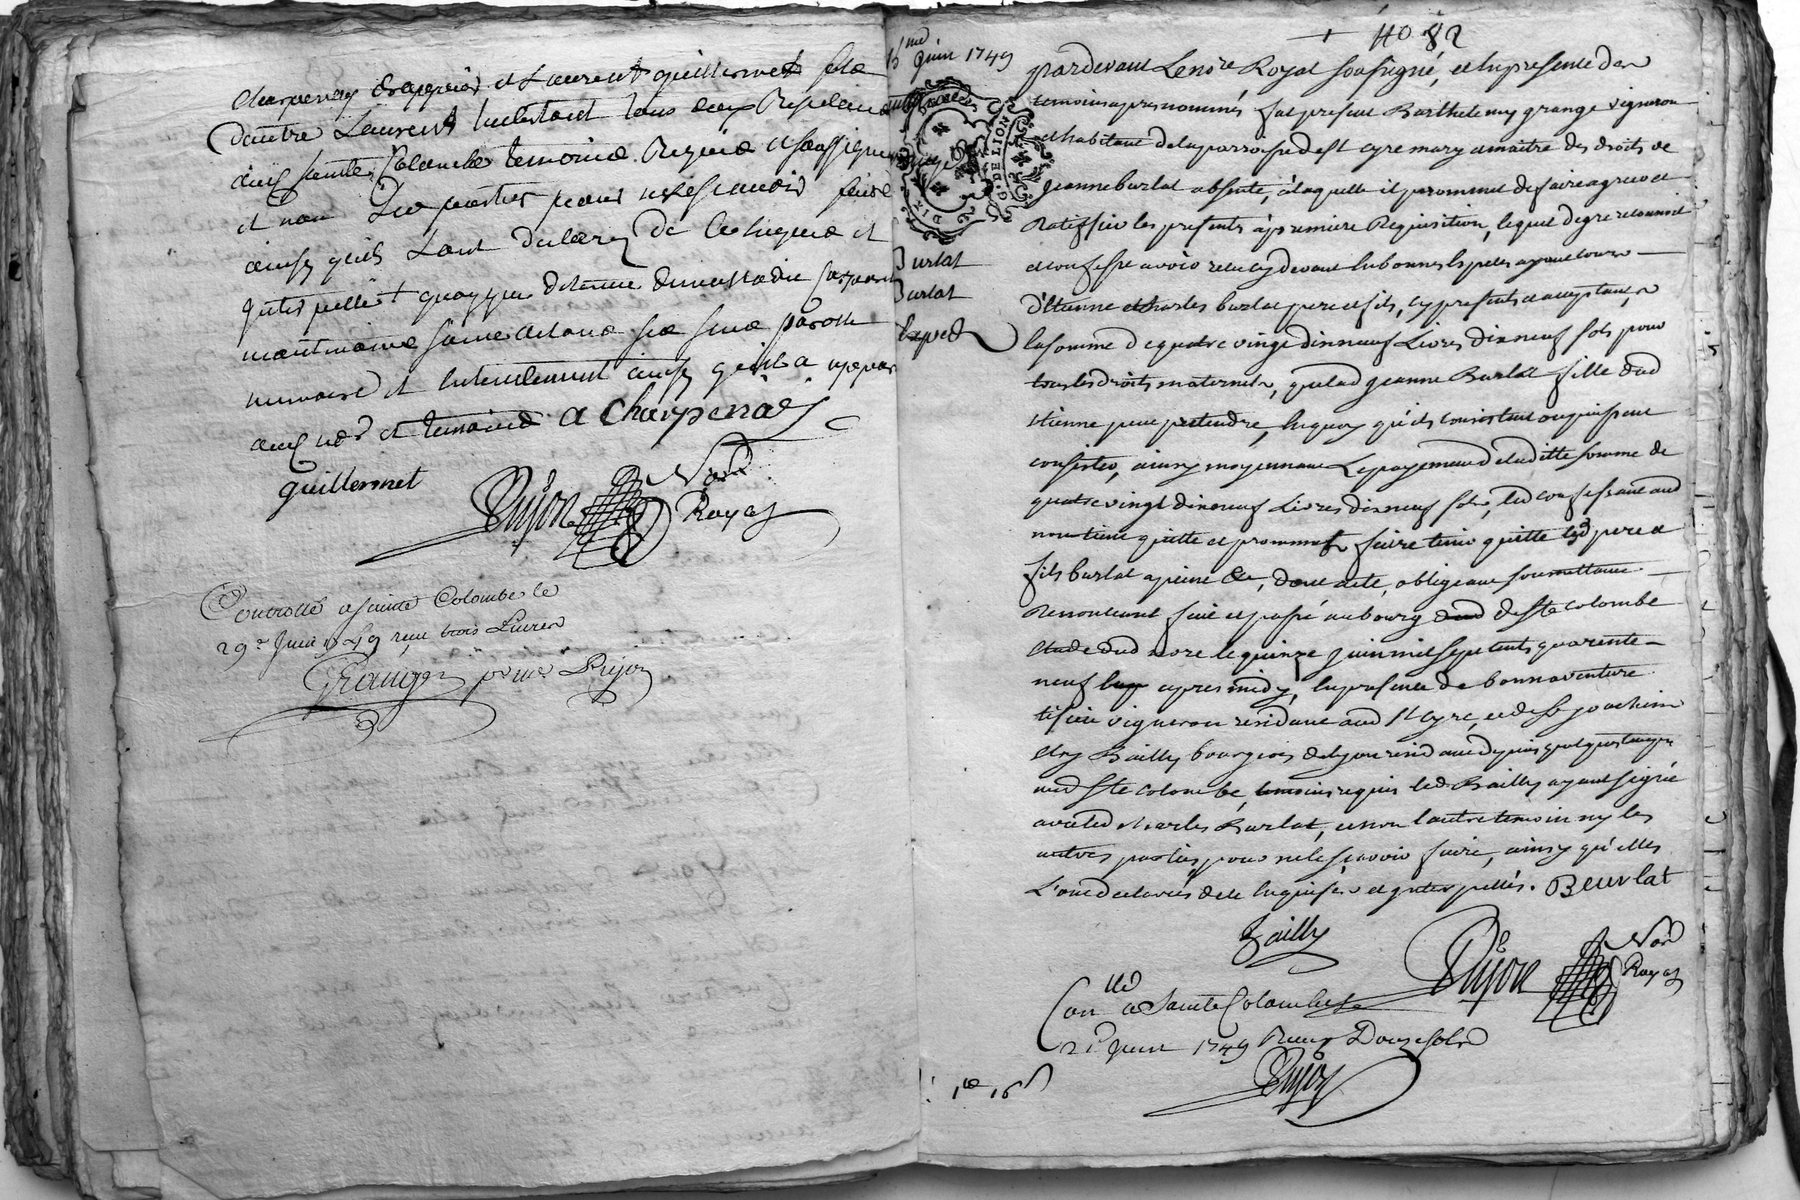 Charpenay et Laurent guillermet fils
d'autre Laurent habitant tous deux
audt sainte Colombe temoins Requis et soussignes
et non les parties pour ne scavoir faire
ainsy quils l'ont declaré de ce enquis et
interpellés quoyque detenue de maladie
neantmoins saine de tous ses sens parolle
memoire et entendement ainsy quil a apparu
aud nore et temoins a Charpenay
guillermet
Dujon Nore
Royal
Controllé a sainte Colombe le
29e Juin 1749 reçu trois Livres
Grange pour mr Dujon
+ 40 82
15me Juin 1749
GD DE LION
Burlat
Burlat
pardevant Le nore Royal soussigné, et en presence des
temoins apres nommés fut present Barthelemy grange vigneron
et habitant de la parroisse de st cyre mary et maitre des droits de
jeanne burlat absente, a laquelle il promet de faire agreer et
Ratiffier les presents a premiere Requisition, lequel de gre reconnoit
et confesse avoir recu cy devant en bonnes especes ayant cours
d'Etienne et charles burlat pere et fils, cy presents et acceptants
la somme de quatre vingt dix neuf Livres dix neuf sols pour
tous les droits maternels, que lad jeanne Burlat fille dud
Etienne peut pretendre, en quoy qu'ils consistent ou puissent
consister, ainsy moyennant Le payement de ladite somme de
quatre vingt dix neuf Livres dix neuf sols, led confessant aud
nom tient quitte et promet faire tenir quitte lesd pere et
fils burlat a peine &c, dont acte, obligeant soumettant
Renonceant fait et passé au bourg de ste colombe
etude dud nore le quinze juin mil sept cents quarente
neuf apres midy, en presence de bonnaventure
vigneron residant aud st cyre, et de sr joachim
Bailly bourgeois de lyon residant depuis quelques temps
aud ste colombe, temoins requis led Bailly ayant signé
avec led charles Burlat, et non l'autre temoin ny les
autres parties, pour ne le scavoir faire, ainsy qu'elles
L'ont declarés de ce enquises et interpellés. Beurlat
Bailly
Dujon Nore
Royal
Conllé a Sainte Colombe le
21e Juin 1749 Recu Douze sols
Dujon